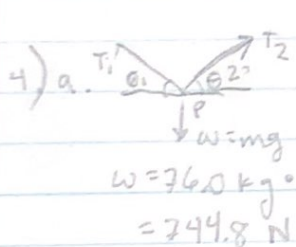 4) a. T₁ θ₁ θ₂ T₂
P
w=mg
w=76.0 kg·
=744.8 N